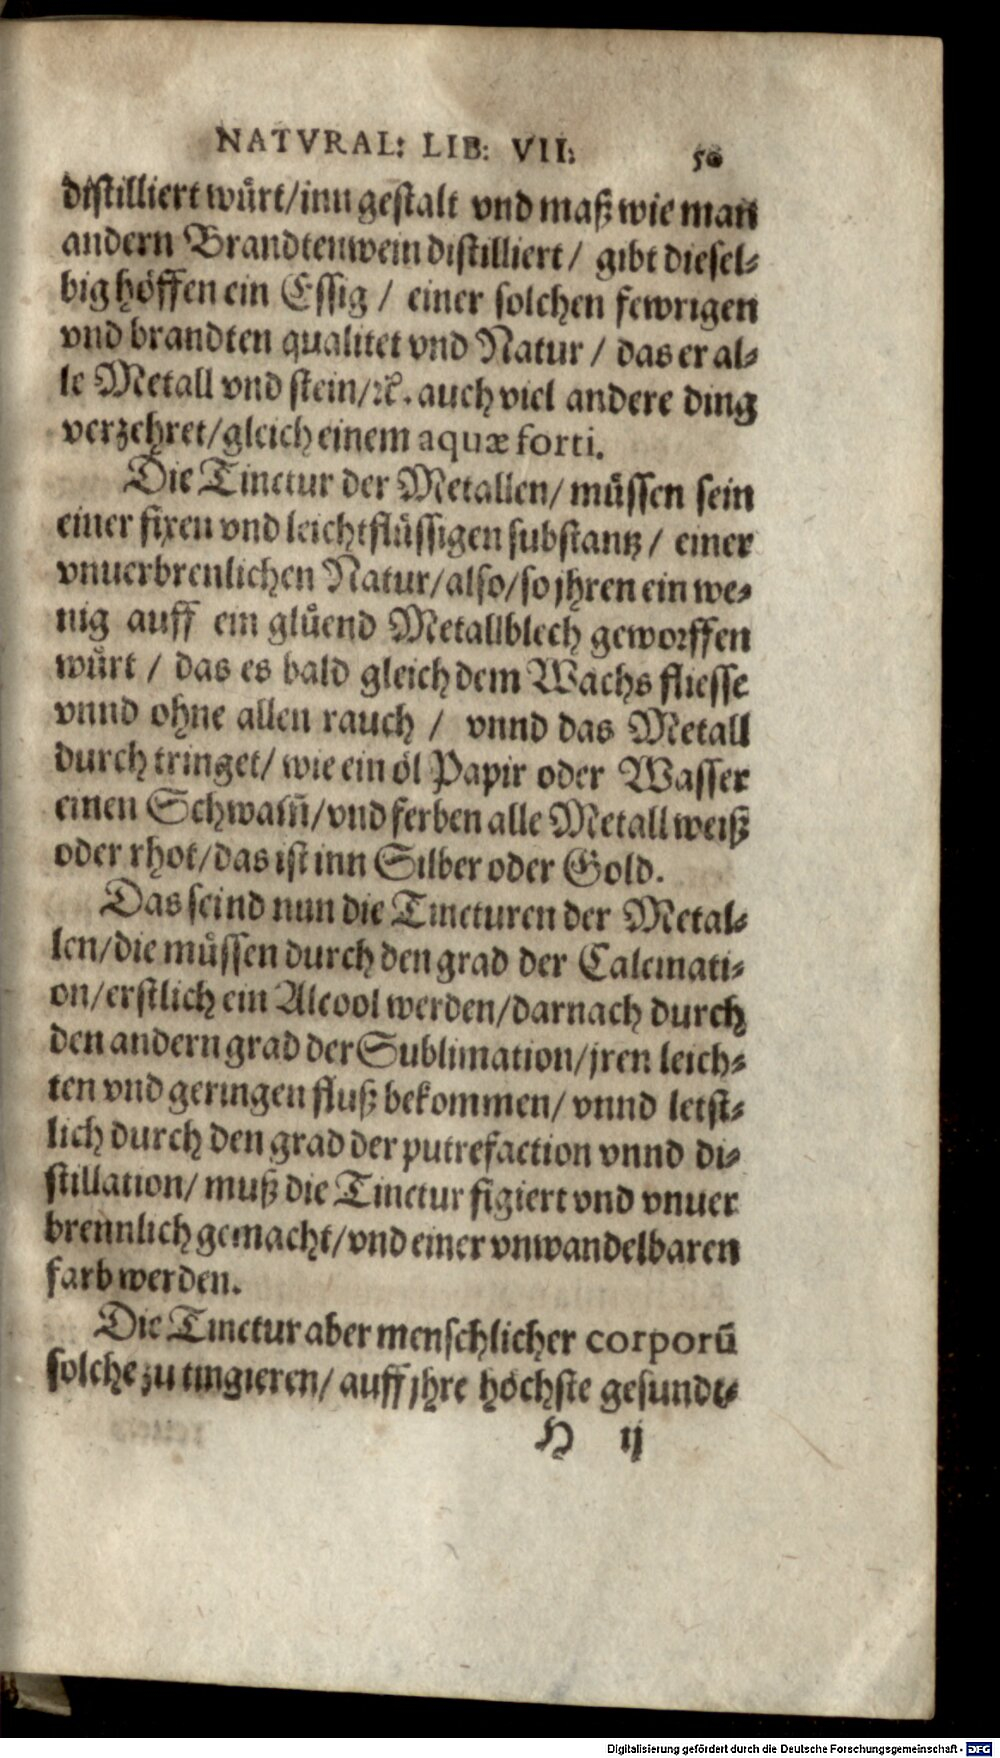 NATVRAL: LIB: VII: 50
distilliert wuͤrt/inn gestalt vnd maß wie man
andern Brandtenwein distilliert/ gibt diesel-
big hoͤffen ein Essig / einer solchen fewrigen
vnd brandten qualitet vnd Natur / das er al-
le Metall vnd stein/ꝛc. auch viel andere ding
verzehret/gleich einem aquæ forti.
Die Tinctur der Metallen/ muͤssen sein
einer fixen vnd leichtfluͤssigen substantz / einer
vnuerbrenlichen Natur/also/so jhren ein we-
nig auff ein gluͤend Metallblech geworffen
wuͤrt / das es bald gleich dem Wachs fliesse
vnnd ohne allen rauch / vnnd das Metall
durch tringet/ wie ein oͤl Papir oder Wasser
einen Schwam̃/vnd ferben alle Metall weiß
oder rhot/das ist inn Silber oder Gold.
Das seind nun die Tincturen der Metal-
len/die muͤssen durch den grad der Calcinati-
on/erstlich ein Alcool werden/darnach durch
den andern grad der Sublimation/jren leich-
ten vnd geringen fluß bekommen/ vnnd letst-
lich durch den grad der putrefaction vnnd di-
stillation/ muß die Tinctur figiert vnd vnuer
brennlich gemacht/vnd einer vnwandelbaren
farb werden.
Die Tinctur aber menschlicher corporū
solche zu tingieren/ auff jhre hoͤchste gesundt-
H ij
Digitalisierung gefördert durch die Deutsche Forschungsgemeinschaft - DFG